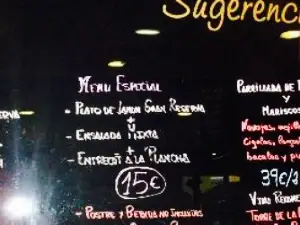 Sugerenc
Menu Especial
- Plato de Jamon Gran Reserva
+
- Ensalada Mixta
+
- Entrecot a la Plancha
15€
- Postre y Bebida no Incluidas
Parrillada de
y
Marisco
Navajas,
Cigalas,
bacalao y
39€/2
Vino
Torre de la